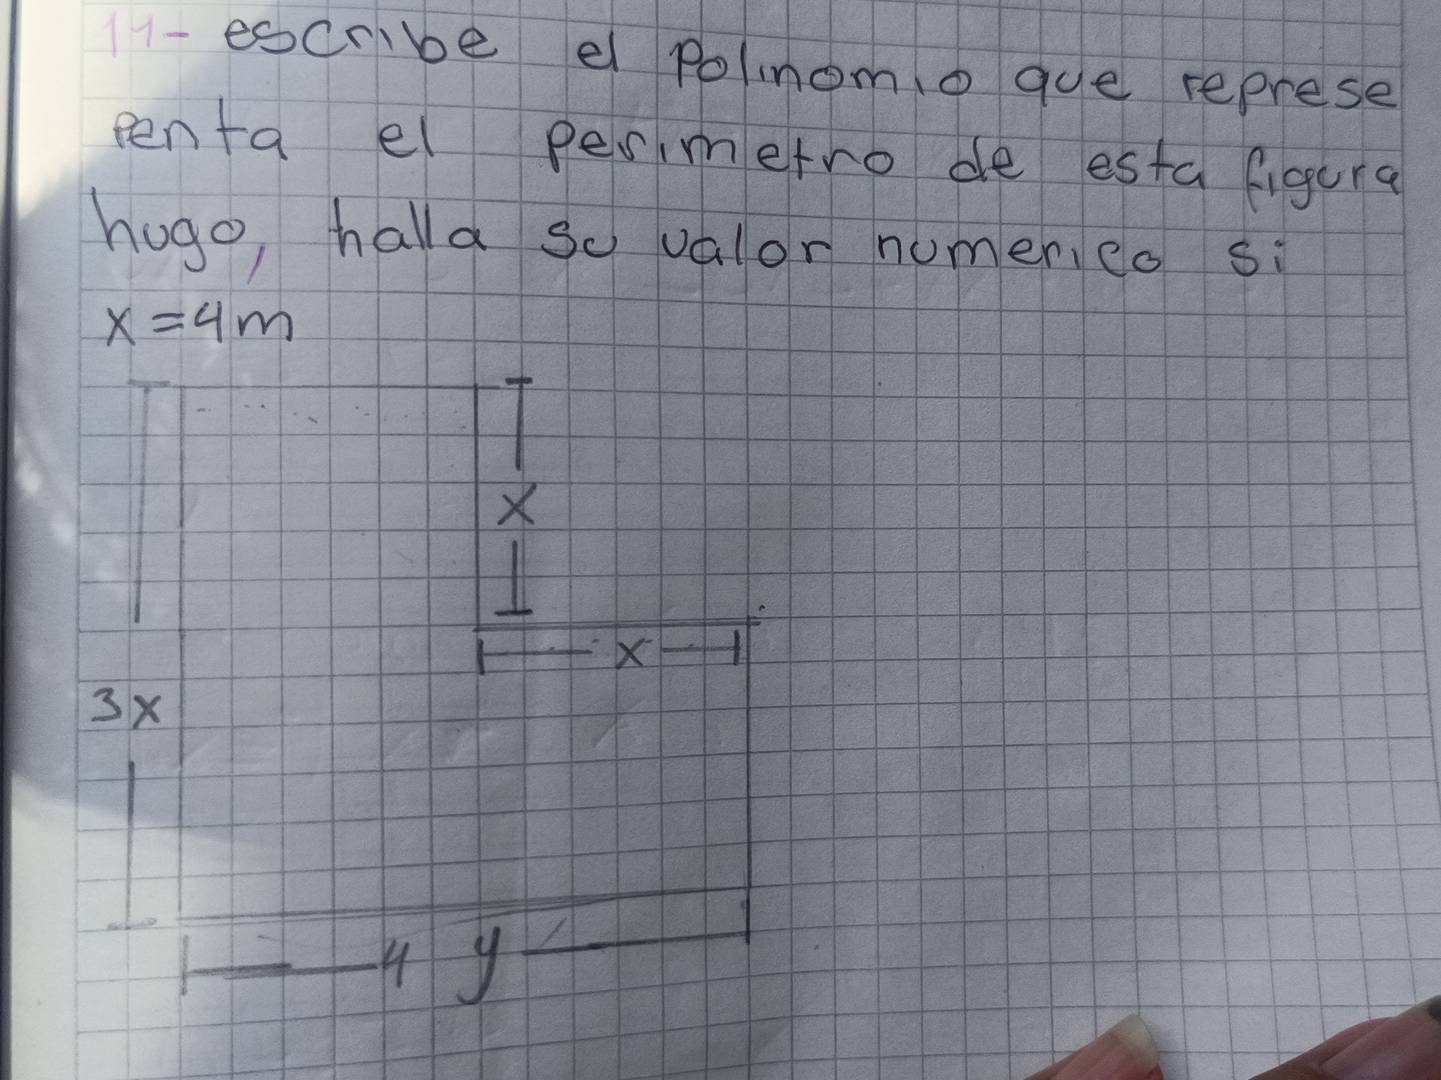 11- escribe el Polinomio que represe
penta el perimetro de esta figura
hugo, halla su valor numerico si
x = 4m
x
x
3x
4 y